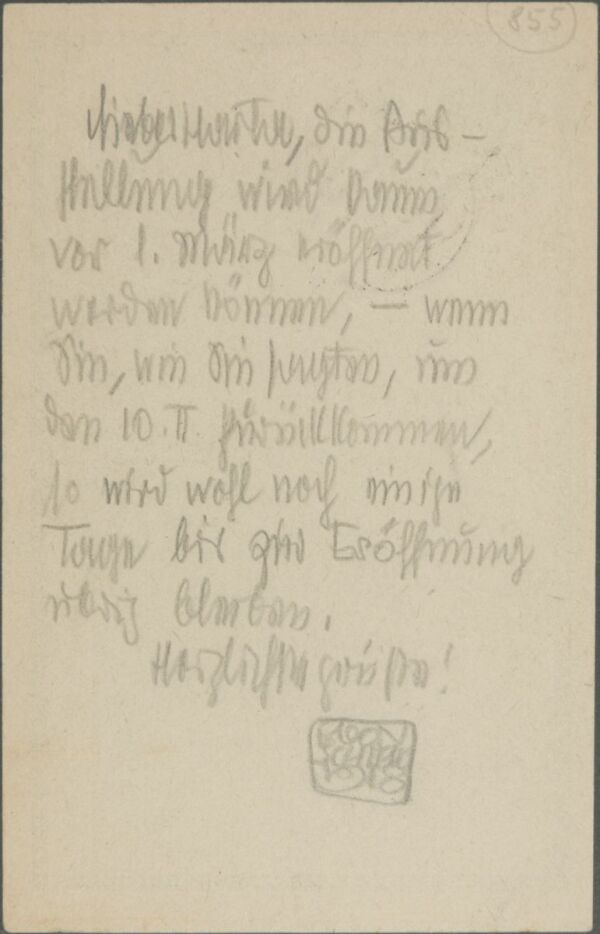 855
Lieber Martha, die Aus-
stellung wird kaum
vor 1. März eröffnet
werden können, — wenn
Sie, wie Sie sagten, um
den 10. II zurückkommen,
so wird wohl noch einige
Tage bis zur Eröffnung
übrig bleiben.
Herzlichste Grüsse!
EGON
SCHIELE
1918